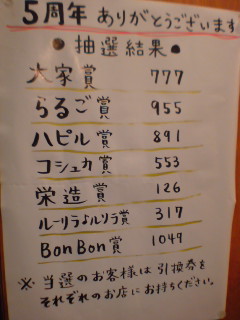 5周年 ありがとうございます
● 抽選結果 ●
大家賞 777
らるご賞 955
ハピル賞 891
コシュカ賞 553
栄造賞 126
ルーリラょルリラ賞 317
BonBon賞 1049
※ 当選のお客様は引換券を
それぞれのお店にお持ちください。